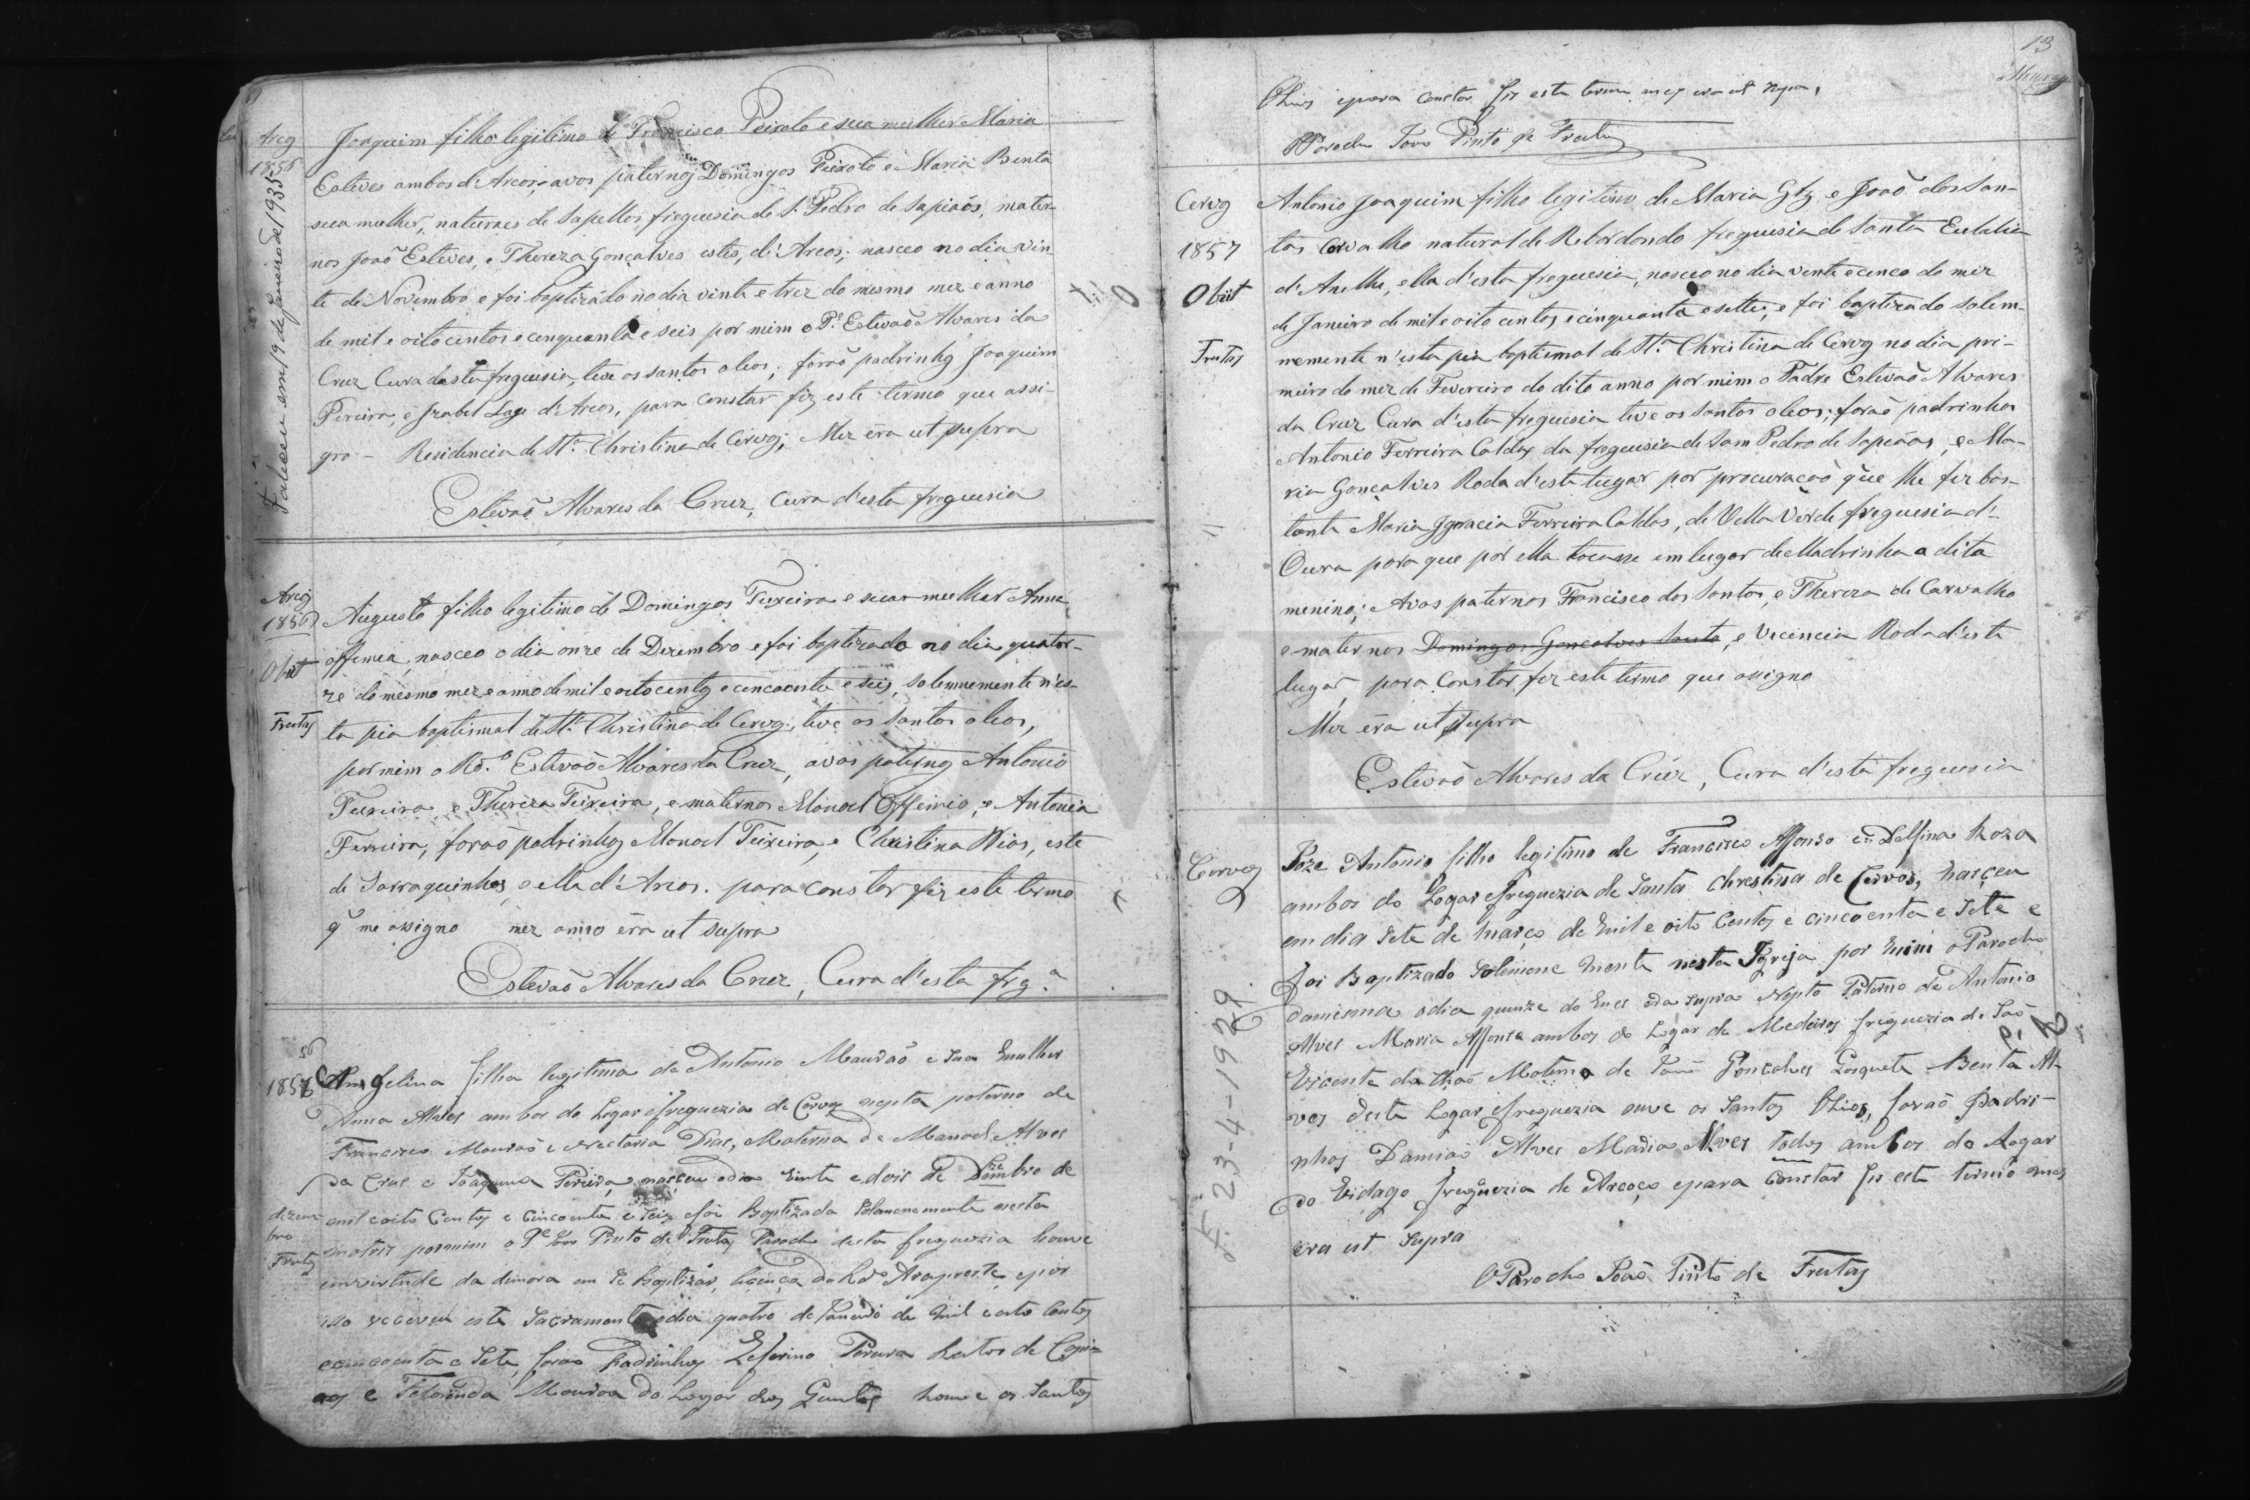 Arcos
1856
Faleceu em 19 de Janeiro de 1935
Joaquim filho legitimo de Francisco Peixoto e sua mulher Maria
Esteves ambos de Arcos, avos paternos Domingos Peixoto e Maria Benta
sua mulher, naturaes de Sapellos freguesia de S. Pedro de Sapiaõs, mater-
nos Joaõ Esteves, e Thereza Gonçalves estes, d'Arcos; nasceo no dia vin
te de Novembro e foi baptizado no dia vinte e trez do mesmo mez e anno
de mil e oito centos e cenquenta e seis por mim o Pe. Estevaõ Alvares da
Cruz Cura desta freguesia, teve os santos oleos; foraõ padrinhos Joaquim
Pereira, e Izabel Lage d'Arcos, para constar fiz este termo que assi-
gno - Residencia de Sta. Christina de Cervos; Mez éra ut supra
Estevaõ Alvares da Cruz, Cura d'esta freguesia
Arcos
1856
Obiit
Freitas
Augusto filho legitimo de Domingos Teixeira e sua mulher Anna
nasceo o dia onze de Dezembro e foi baptizado no dia quator-
ze do mesmo mez e anno de mil e oito centos e cencoenta e seis, solemnemente n'es-
ta pia baptismal de Sta. Christina de Cervos, teve os santos oleos,
por mim o Rdo. Estevaõ Alvares da Cruz, avos paternos Antonio
Teixeira e Thereza Teixeira, e maternos Manoel e Antonia
Ferreira, foraõ padrinhos Manoel Teixeira, e Christina Dias, este
de Sarraquinhos, e ella d'Arcos. para constar fiz este termo
q' me assigno mez anno éra ut supra
Estevaõ Alvares da Cruz, Cura d'esta frga.
56
1857
dezem
bro
Freitas
Angelina filha legitima de Antonio Mouraõ e sua mulher
Anna Alves ambos do Logar e freguezia de Cervos nepta paterna de
Francisco Mouraõ e Dias, Materna de Manoel Alves
da Cruz e Joaquina Pereira nasceu o dia vinte e dois de Dezembro de
mil e oito Centos e Cincoenta e Seis e foi Baptizada Solemnemente nesta
matris por mim o Pe. Joaõ Pinto de Freitas Parocho desta freguezia houve
em virtude da demora em se baptizar, licença do Rdo. Arcipreste, e por
isso recebeu este Sacramento o dia quatro de Janeiro de mil e oito Centos
e cincoenta e Sete, foraõ Padrinhos Zeferino Pereira de
e Mouroa do Logar dos houve os Santos
13
Olios e para constar fis este termo mez era ut supra,
O Parocho Joaõ Pinto de Freitas
Cervos
1857
Obiit
Freitas
Antonio Joaquim filho legitimo de Maria Glz. e Joaõ dos San-
tos Carvalho natural de Rebordondo freguesia de Santa Eulalia
d'Anelhe, e ella d'esta freguesia, nasceo no dia vinte e cenco do mez
de Janeiro de mil e oito centos e cinquenta e sette; e foi baptizado solem-
nemente n'esta pia baptismal de Sta. Christina de Cervos no dia pri-
meiro do mez de Fevereiro do dito anno por mim o Padre Estevaõ Alvares
da Cruz Cura d'esta freguesia teve os santos oleos; foraõ padrinhos
Antonio Ferreira Caldas da freguesia de Sam Pedro de Sapiaõs, e Ma-
ria Gonçalves Roda d'este lugar por procuraçaõ que lhe fez bas-
tante Maria Ignacia Ferreira Caldas, de Villa Verde freguesia d'
Oura para que por ella tocasse em lugar de Madrinha a dita
menino; Avos paternos Francisco dos Santos, e Thereza de Carvalho
e maternos Domingos Gonçalves, e Vicencia Roda d'este
lugar, para constar fiz este termo que assigno
Mez éra ut supra
Estevaõ Alvares da Cruz, Cura d'esta freguesia
Cervos
F. 23-4-1929.
Joze Antonio filho legitimo de Francisco Affonso e Delfina Roza
ambos do Logar e freguezia de Santa Christina de Cervos, nasceu
em dia Sete de março de mil e oito Centos e cincoenta e Sete e
foi Baptizado Solemnemente nesta Igreja por mim o Parocho
da mesma o dia quinze do mes era supra Nepto Paterno de Antonio
Alves Maria Affonsa ambos do Logar de Medeiros freguezia de Saõ
Vicente da Chaõ Materno de Gonçalves Benta Al-
ves deste Logar e freguezia ouve os Santos Olios, foraõ Padri-
nhos Damiaõ Alves Maria Alves todos ambos do Logar
do Vidago freguezia de Arcoço e para Constar fis este termo mes
era ut supra
O Parocho Joaõ Pinto de Freitas